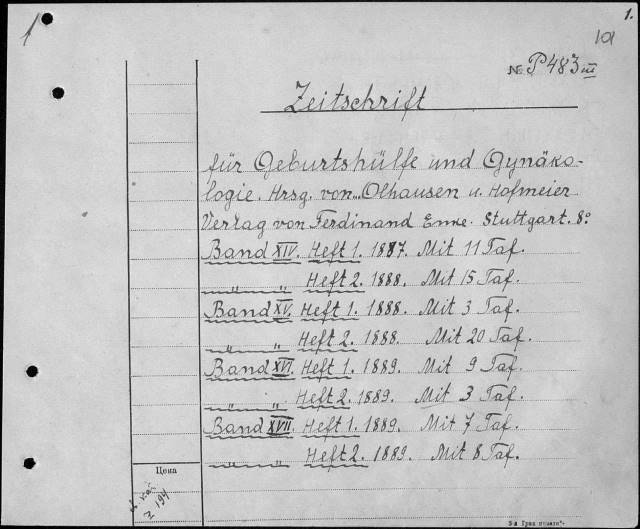 1.
1
101
№ P483 III
Zeitschrift
für Geburtshülfe und Gynäko-
logie. Hrsg. von Olhausen u. Hofmeier
Verlag von Ferdinand Enke. Stuttgart. 8°
Band XIV. Heft 1. 1887. Mit 11 Taf.
„ „ Heft 2. 1888. Mit 15 Taf.
Band XV. Heft 1. 1888. Mit 3 Taf.
„ „ Heft 2. 1888. Mit 20 Taf.
Band XVI. Heft 1. 1889. Mit 9 Taf.
„ „ Heft 2. 1889. Mit 3 Taf.
Band XVII. Heft 1. 1889. Mit 7 Taf.
„ „ Heft 2. 1889. Mit 8 Taf.
Цена
194